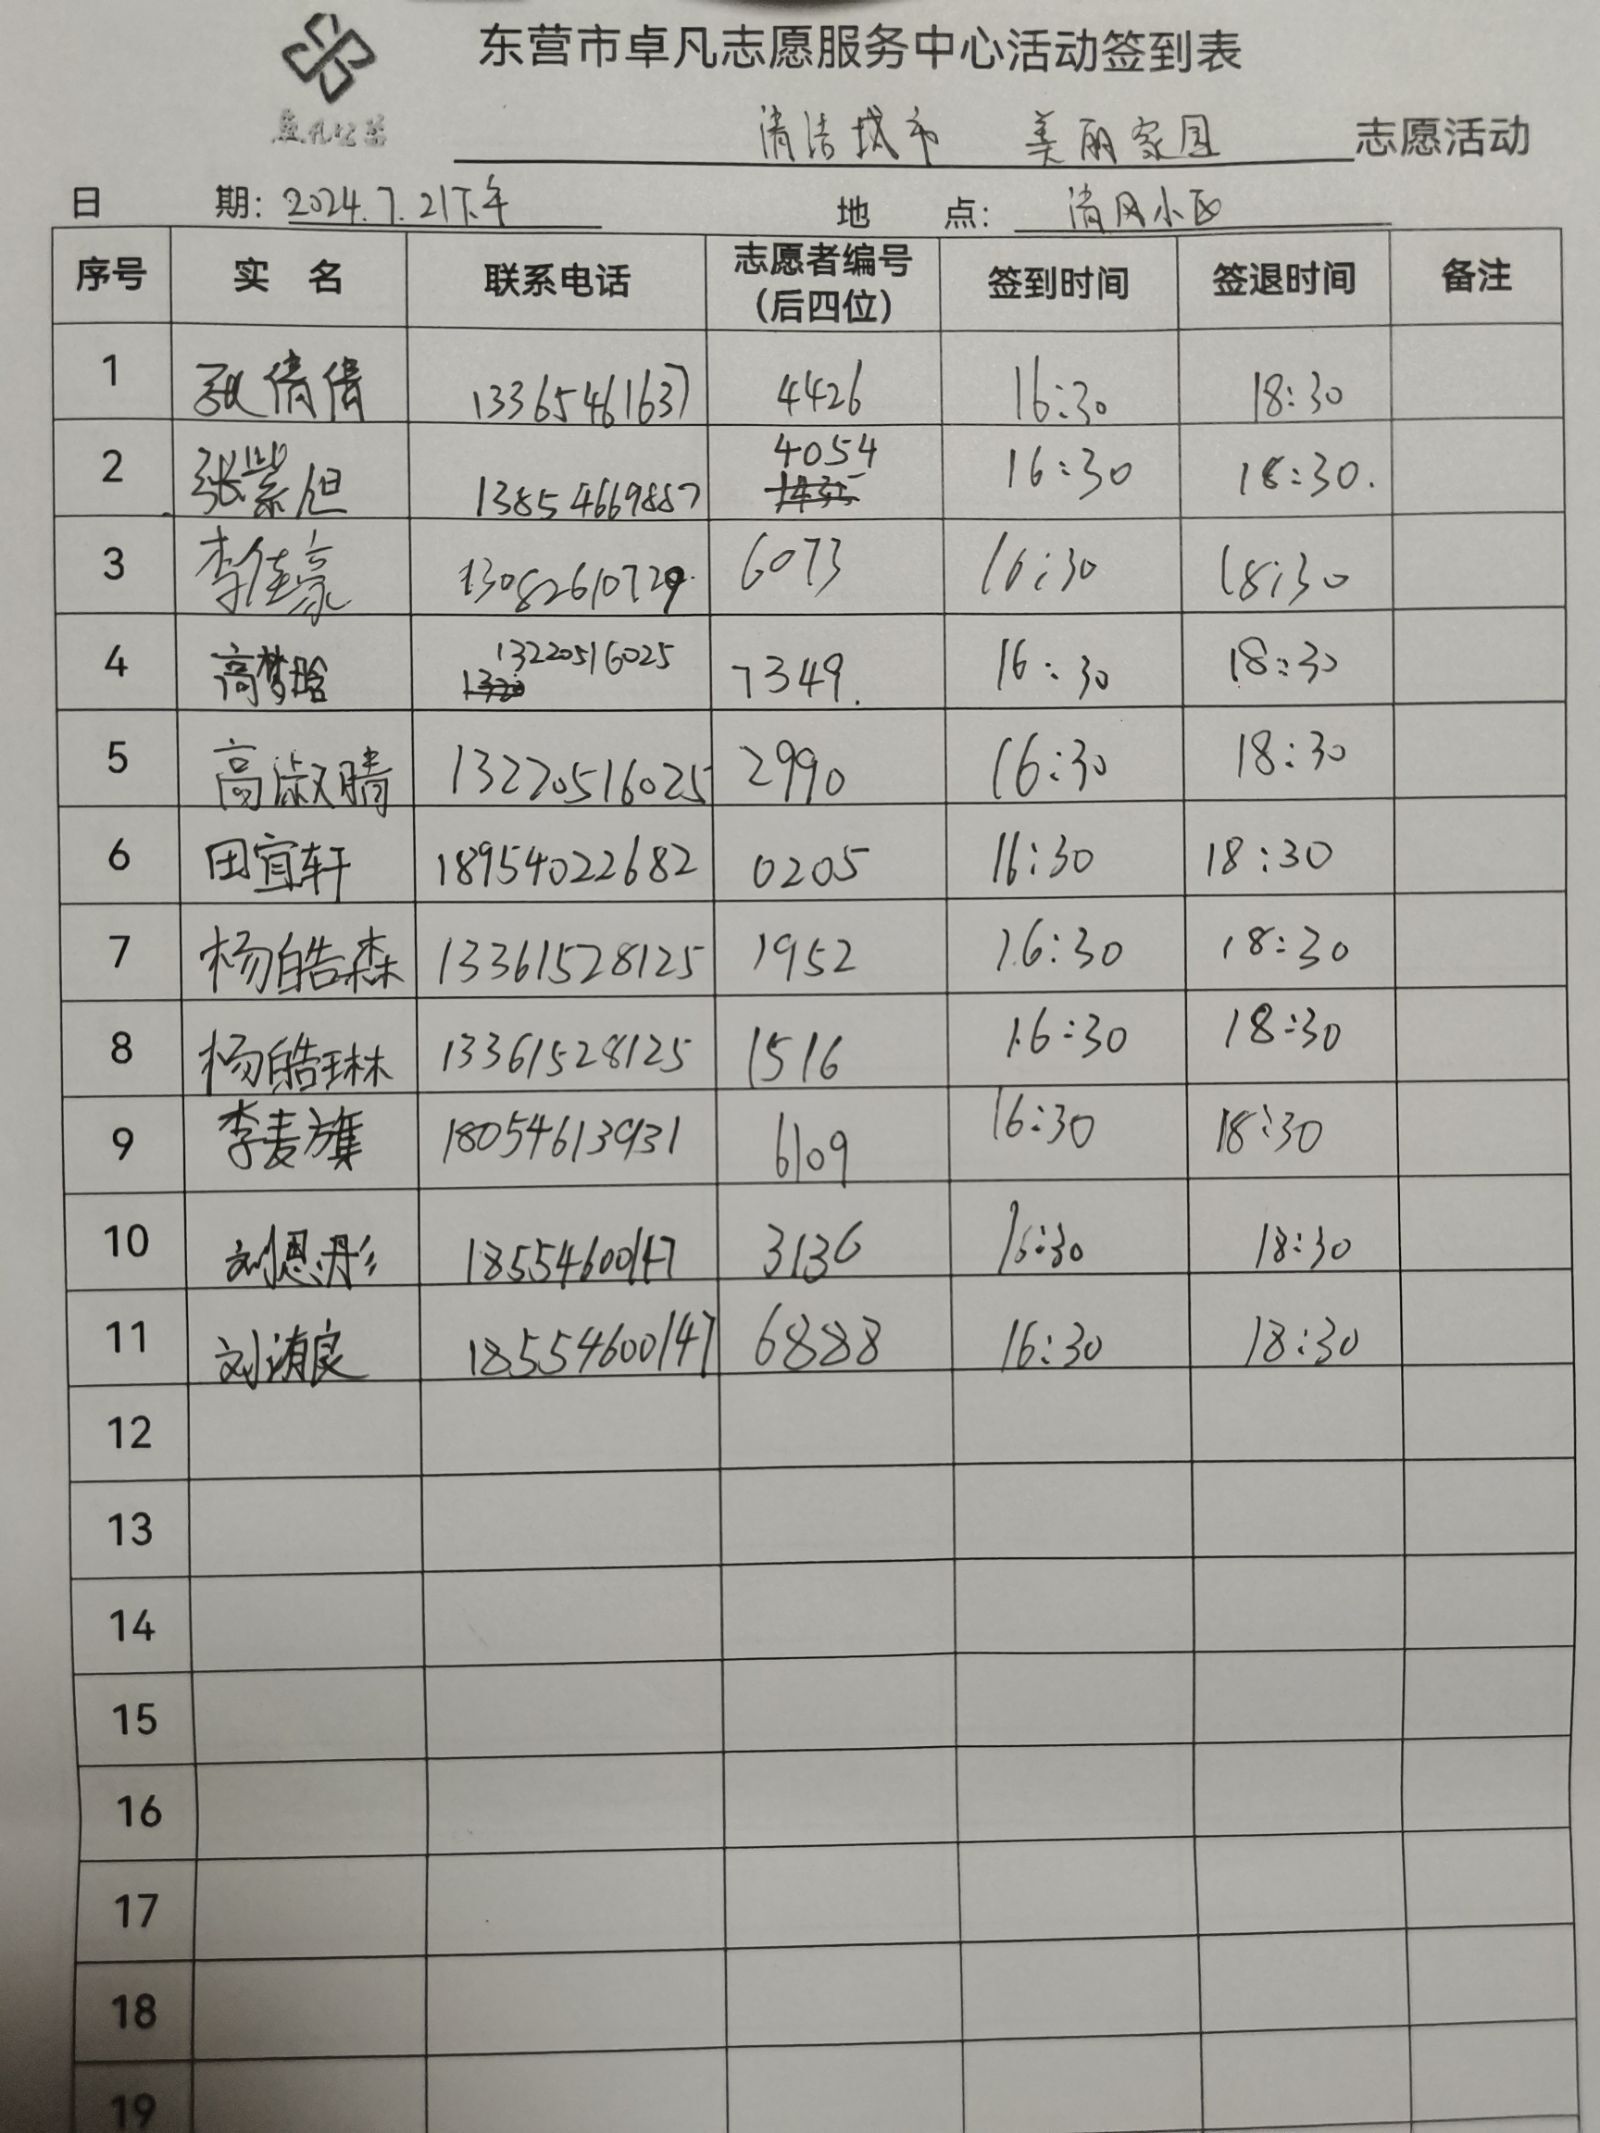 东营市卓凡志愿服务中心活动签到表
清洁城市 美丽家园 志愿活动
日 期: 2024.7.21下午 地 点: 清风小区
序号 实 名 联系电话 志愿者编号 签到时间 签退时间 备注
(后四位)
1 张倩倩 13365461637 4426 16:30 18:30
2 张紫恒 13854669887 4054 16:30 18:30.
3 李佳豪 13082610729 6073 16:30 18:30
4 高梦晗 13220516025 7349. 16:30 18:30
5 高淑晴 13220516025 2990 16:30 18:30
6 田宜轩 18954022682 0205 16:30 18:30
7 杨皓森 13361528125 1952 16:30 18:30
8 杨皓琳 13361528125 1516 16:30 18:30
9 李麦旗 18054613931 6109 16:30 18:30
10 刘恩彤 18554600147 3136 16:30 18:30
11 刘洧良 18554600147 6888 16:30 18:30
12
13
14
15
16
17
18
19